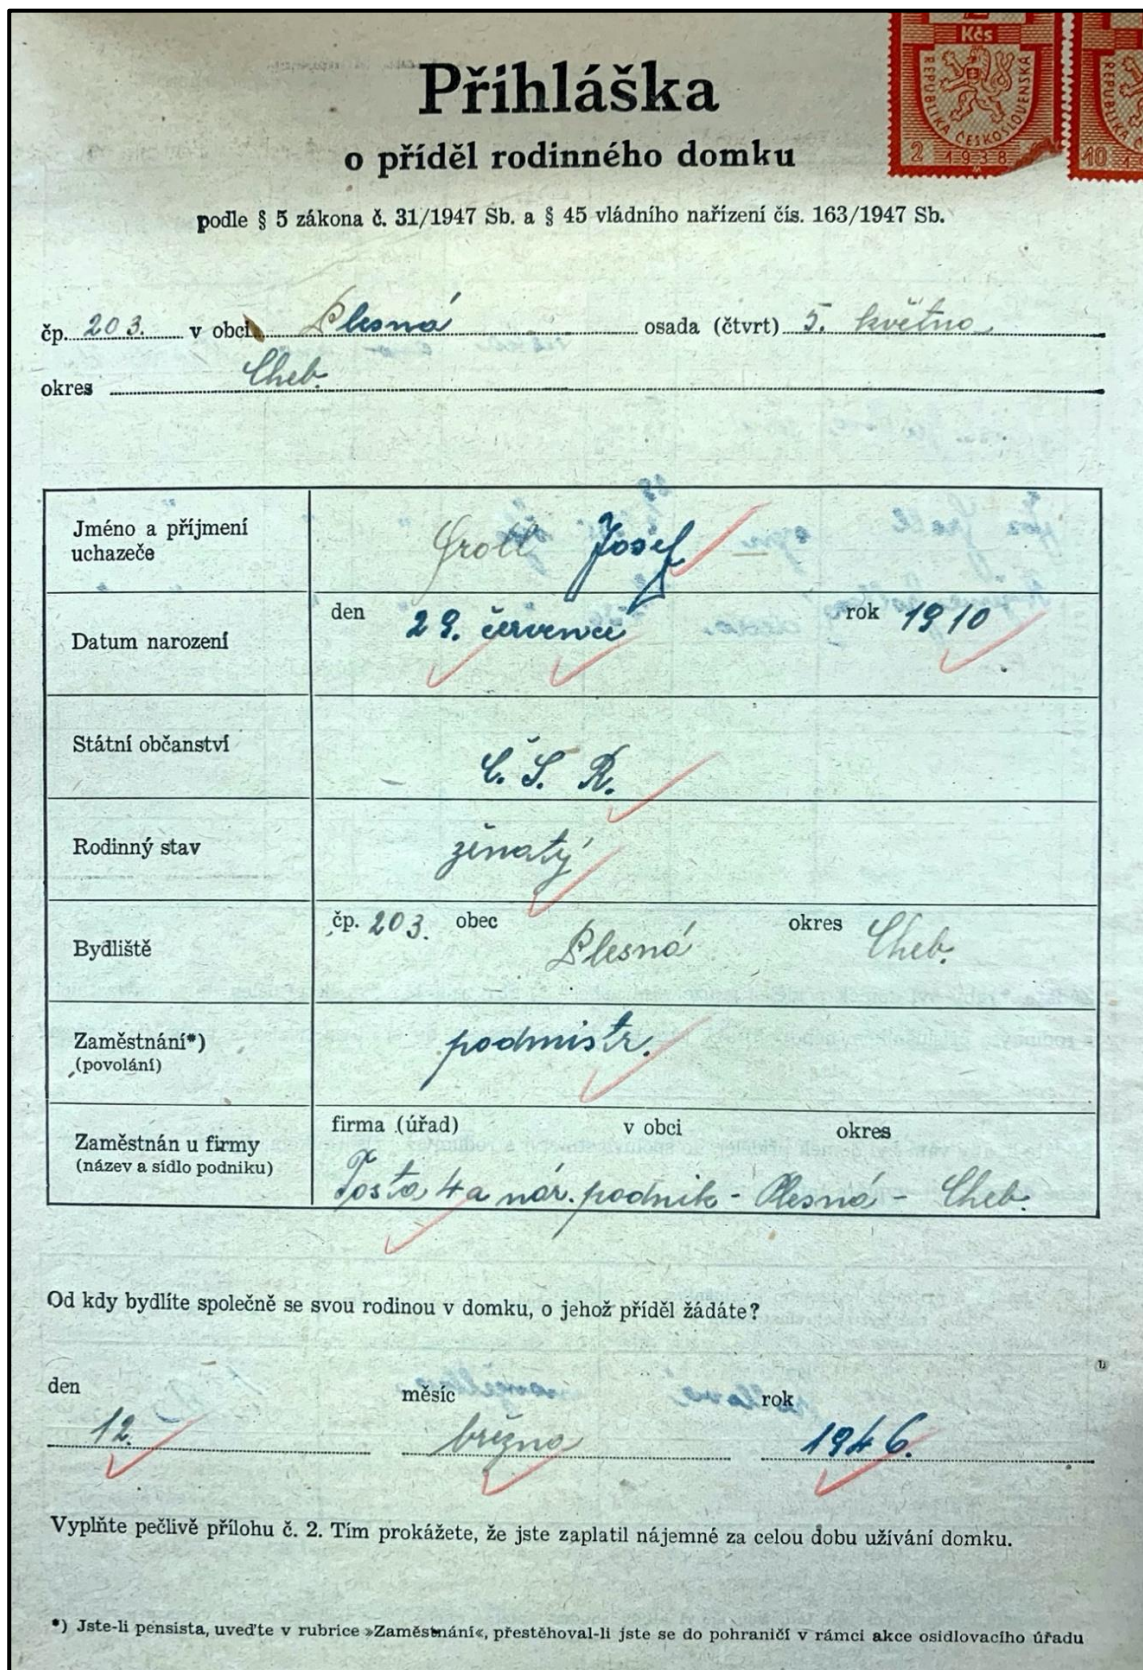 Kčs
REPUBLIKA ČESKOSLOVENSKÁ
2 1938
10
Přihláška
o příděl rodinného domku
podle § 5 zákona č. 31/1947 Sb. a § 45 vládního nařízení čís. 163/1947 Sb.
čp. 203. v obci Plesná osada (čtvrt) 5. květno
okres Cheb.
Jméno a příjmení uchazeče
Grotl Josef
Datum narození
den 29. července rok 1910
Státní občanství
Č. S. R.
Rodinný stav
ženatý
Bydliště
čp. 203. obec Plesná okres Cheb.
Zaměstnání*)
(povolání)
podmistr.
Zaměstnán u firmy
(název a sídlo podniku)
firma (úřad) v obci okres
Tosta 4a nár. podnik - Plesná - Cheb.
Od kdy bydlíte společně se svou rodinou v domku, o jehož příděl žádáte?
den měsíc rok
12. března 1946.
Vyplňte pečlivě přílohu č. 2. Tím prokážete, že jste zaplatil nájemné za celou dobu užívání domku.
*) Jste-li pensista, uveďte v rubrice »Zaměstnání«, přestěhoval-li jste se do pohraničí v rámci akce osidlovacího úřadu